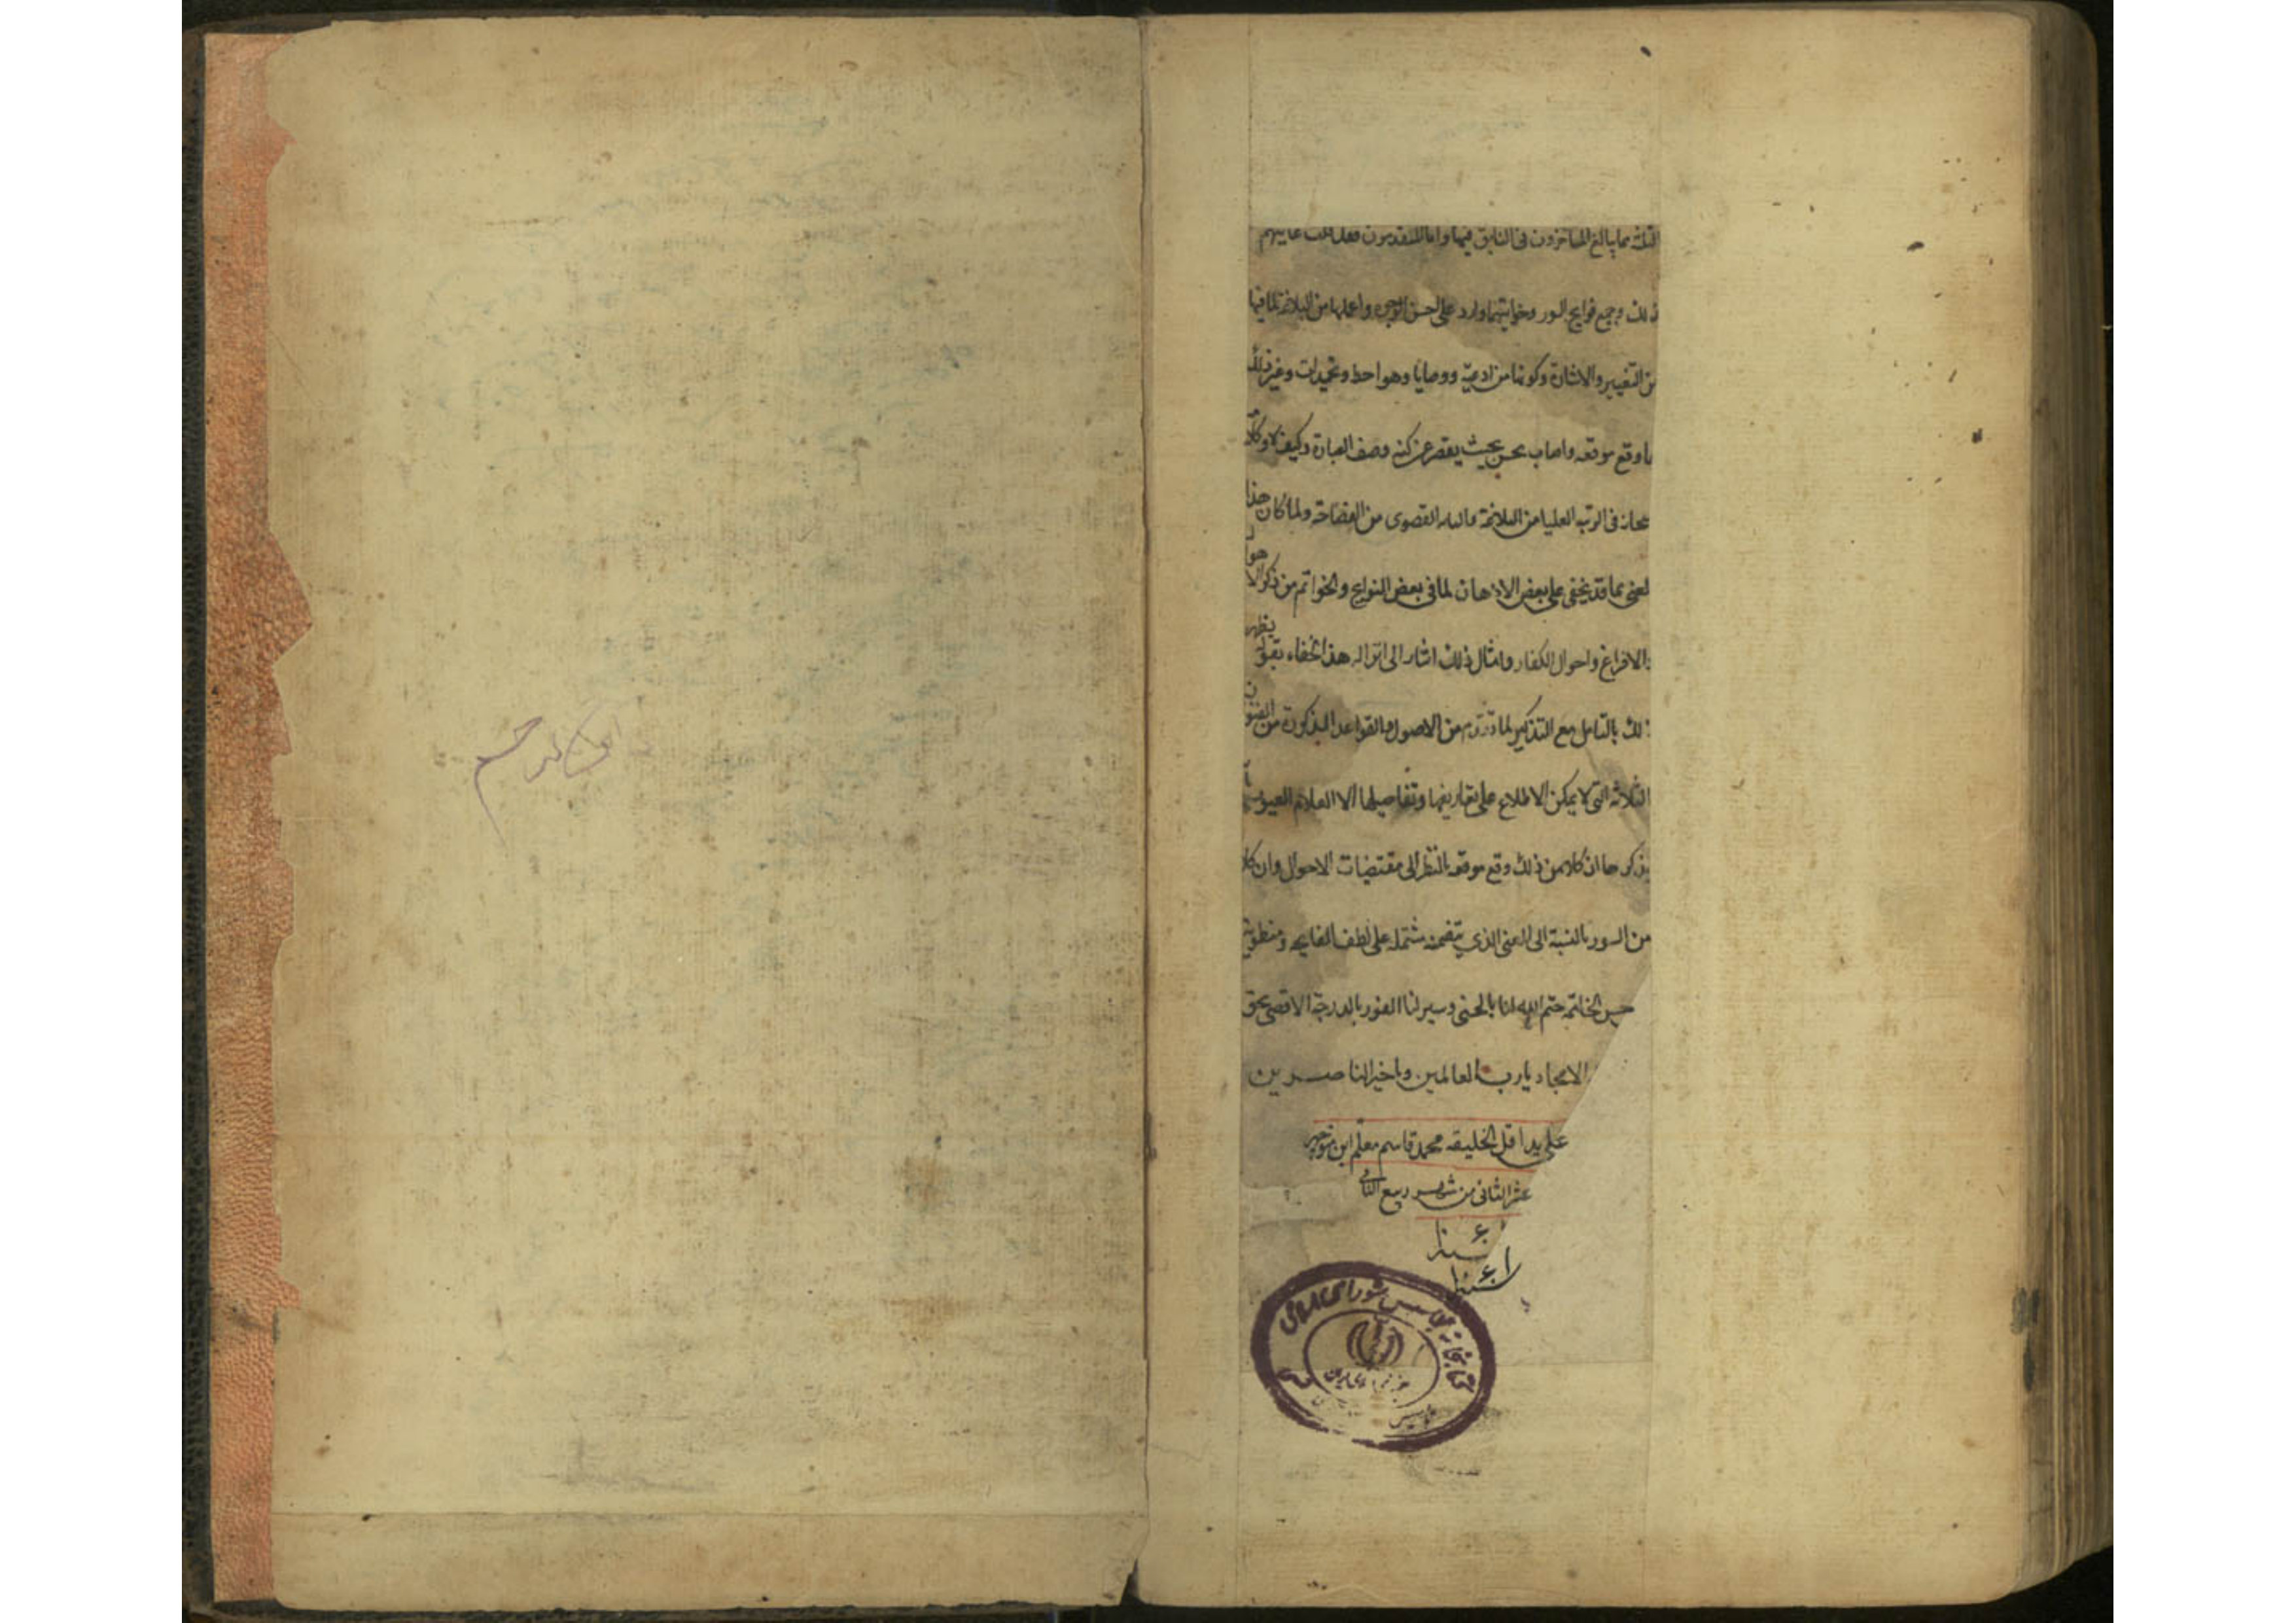 الثلثة مما يبالغ المتاخرون في التانق فيها واما المتقدمون فقد
ذلك وجميع فواتح السور وخواتمها وارد على احسن الوجوه واكملها من البلاغة لما فيها
من التفنن والاشارة وكونها من ادعية ووصايا ومواعظ وتحميدات وغير ذلك
ما وقع موقعه واصاب بحيث يقصر عن كنه وصف العبارة وكيف لا وكلام
في الرتبة العليا من البلاغة والغاية القصوى من الفصاحة ولما كان هذا
المعنى مما قد يخفى على بعض الاذهان لما في بعض الفواتح والخواتم من ذكر الاهوال
والافزاع واحوال الكفار وامثال ذلك اشار الى ازالة هذا الخفاء بقوله يظهر
ذلك بالتامل مع التذكير لما تقدم من الاصول والقواعد المذكورة من الفنون
الثلاثة التي لا يمكن الاطلاع على تفاريعها وتفاصيلها الا العلام الغيوب
ان كلا من ذلك وقع موقعه بالنظر الى مقتضيات الاحوال وان كلا
من السور بالنسبة الى المعنى الذي يتضمنه مشتملة على لطف الفاتحة ومنطوية
حسن الخاتمة ختم الله لنا بالحسنى ويسر لنا الفوز بالدرجة الاقصى بحق
الامجاد يا رب العالمين ويا خير الناصرين
على يد اقل الخليقه محمد قاسم معلم ابن منوچهر
عشر الثاني من شهر ربيع الثاني
كتابخانه مجلس شورای اسلامی